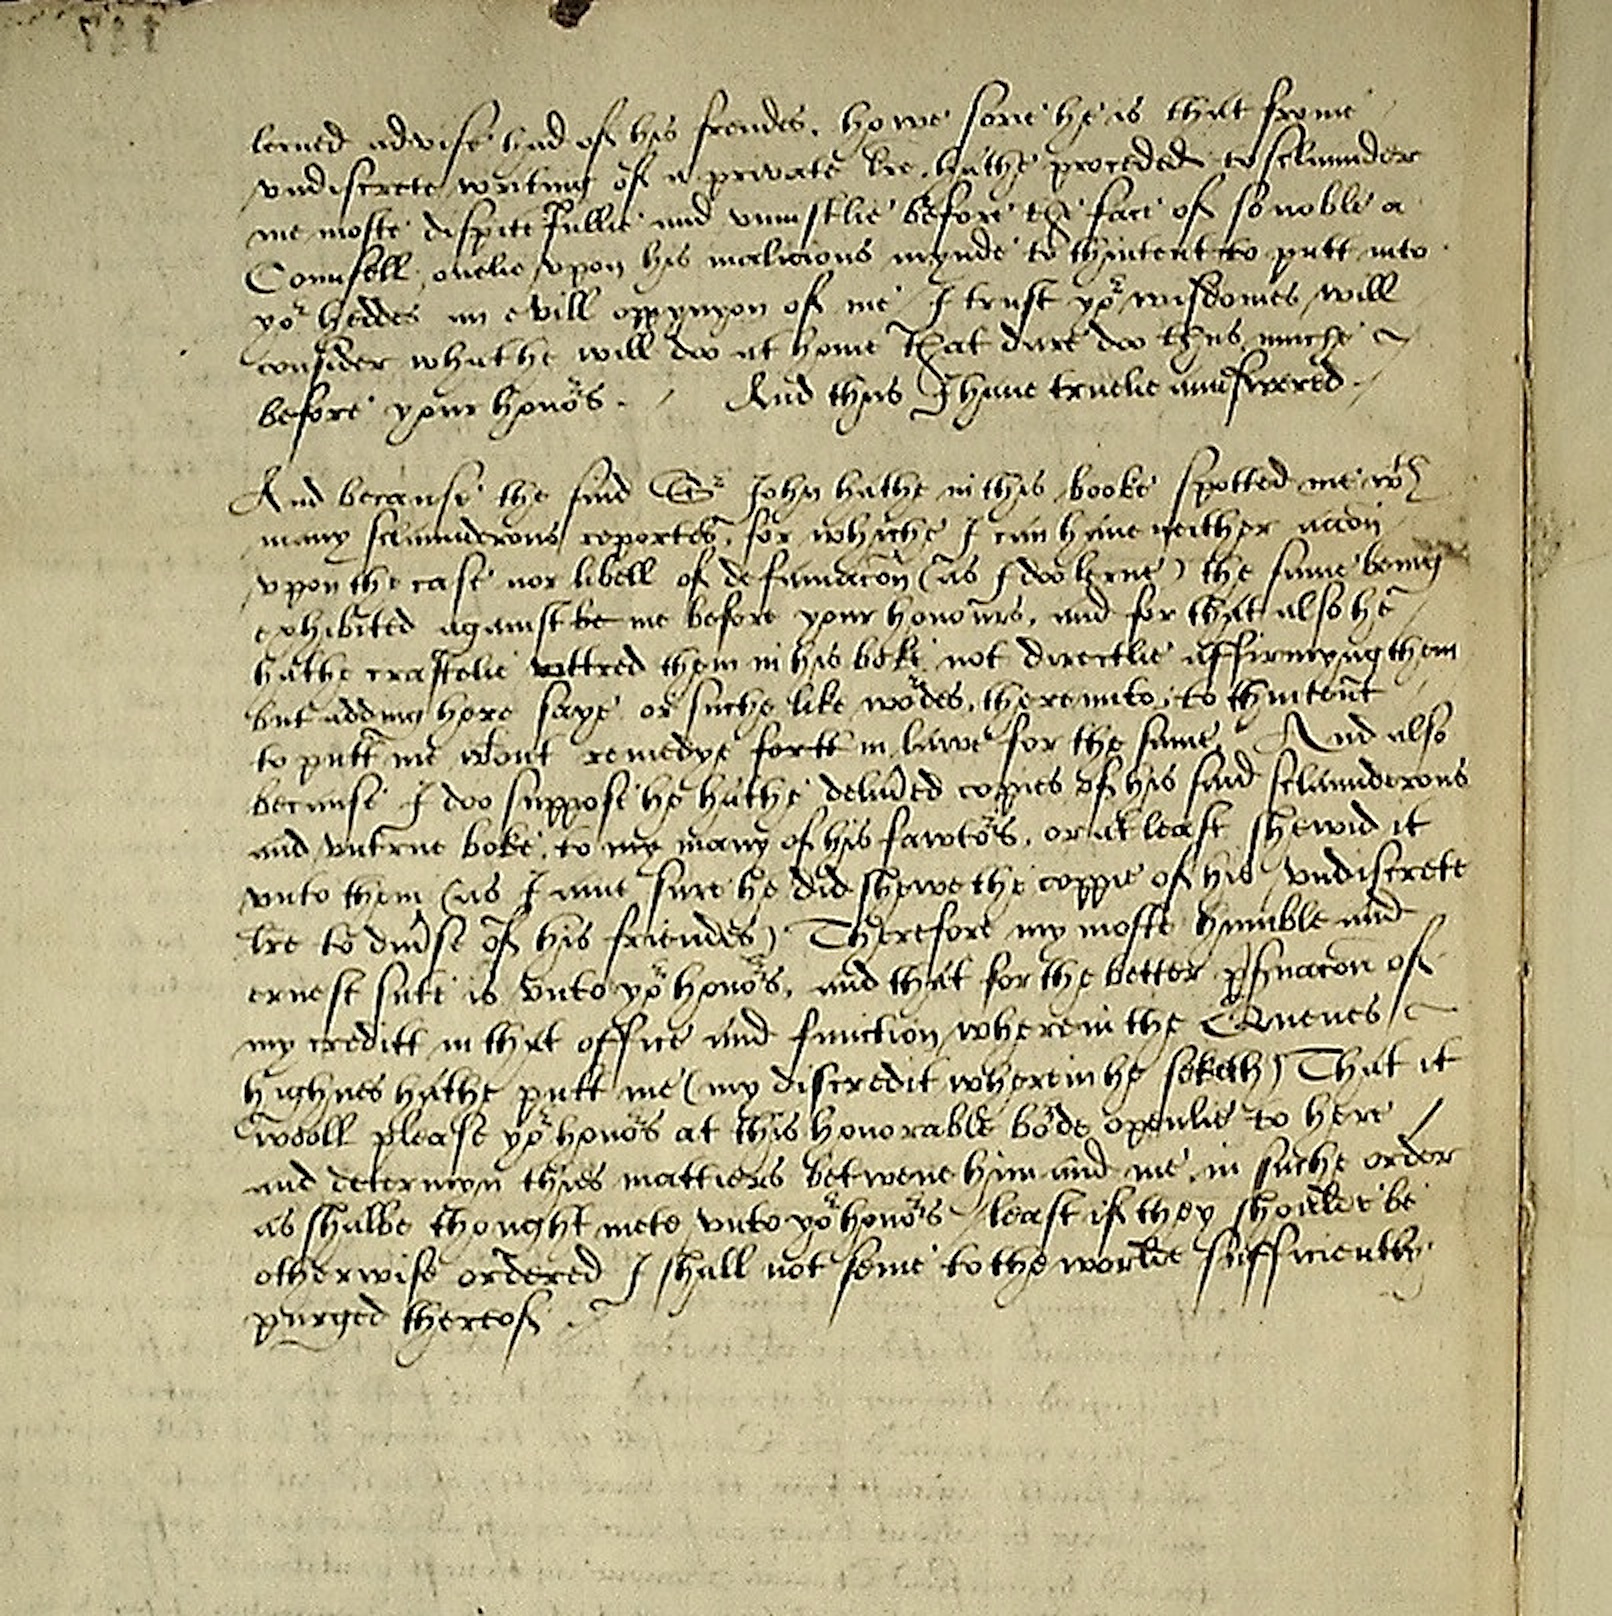 lerned advise had of his frendes. howe sorie he is that frome
vndiscrete writing of a private lre. hathe proceded to sclaunder
me moste dispitefullie and vniustlie before the face of so noble a
Counsell, onelie vpon his malicious mynde to thintent to putt into
yor heddes an evill oppynyon of me I trust yor wisdomes will
consider what he will doo at home that dare doo thus muche
before your honors. And thus I haue truelie aunswered.
And because the said Sr John hathe in this booke spotted me wth
many sclaunderous reportes, for whiche I can haue neither accon
vpon the case nor libell of defamacon (as I doo lerne) the same being
exhibited against be me before your honours, and for that also he
hathe craftelie vttred them in his boke not directlie affirmyng them
but adding here saye or suche like wordes, therevnto, to thintent
to putt me wtout remedye fortt in lawe for the same. And also
because I doo suppose he hathe deliued copies of his said sclaunderous
and vntrue boke, to my many of his fawtors, or at least shewid it
vnto them (as I ame sure he did shewe the coppie of his vndiscrete
lre to diuse of his friendes) Therefore my moste humble and
ernest sute is vnto yor honors, and that for the better pseruacon of
my creditt in that office and function wherein the Quenes
highnes hathe putt me (my discredit wherein he seketh) That it
wooll please yor honors at this honorable borde openlie to here
and determyn thies mattiers betwene him and me, in suche order
as shalbe thought mete vnto yor honors least if they shoulde be
otherwise ordered I shall not seme to the worlde sufficiently
purged thereof